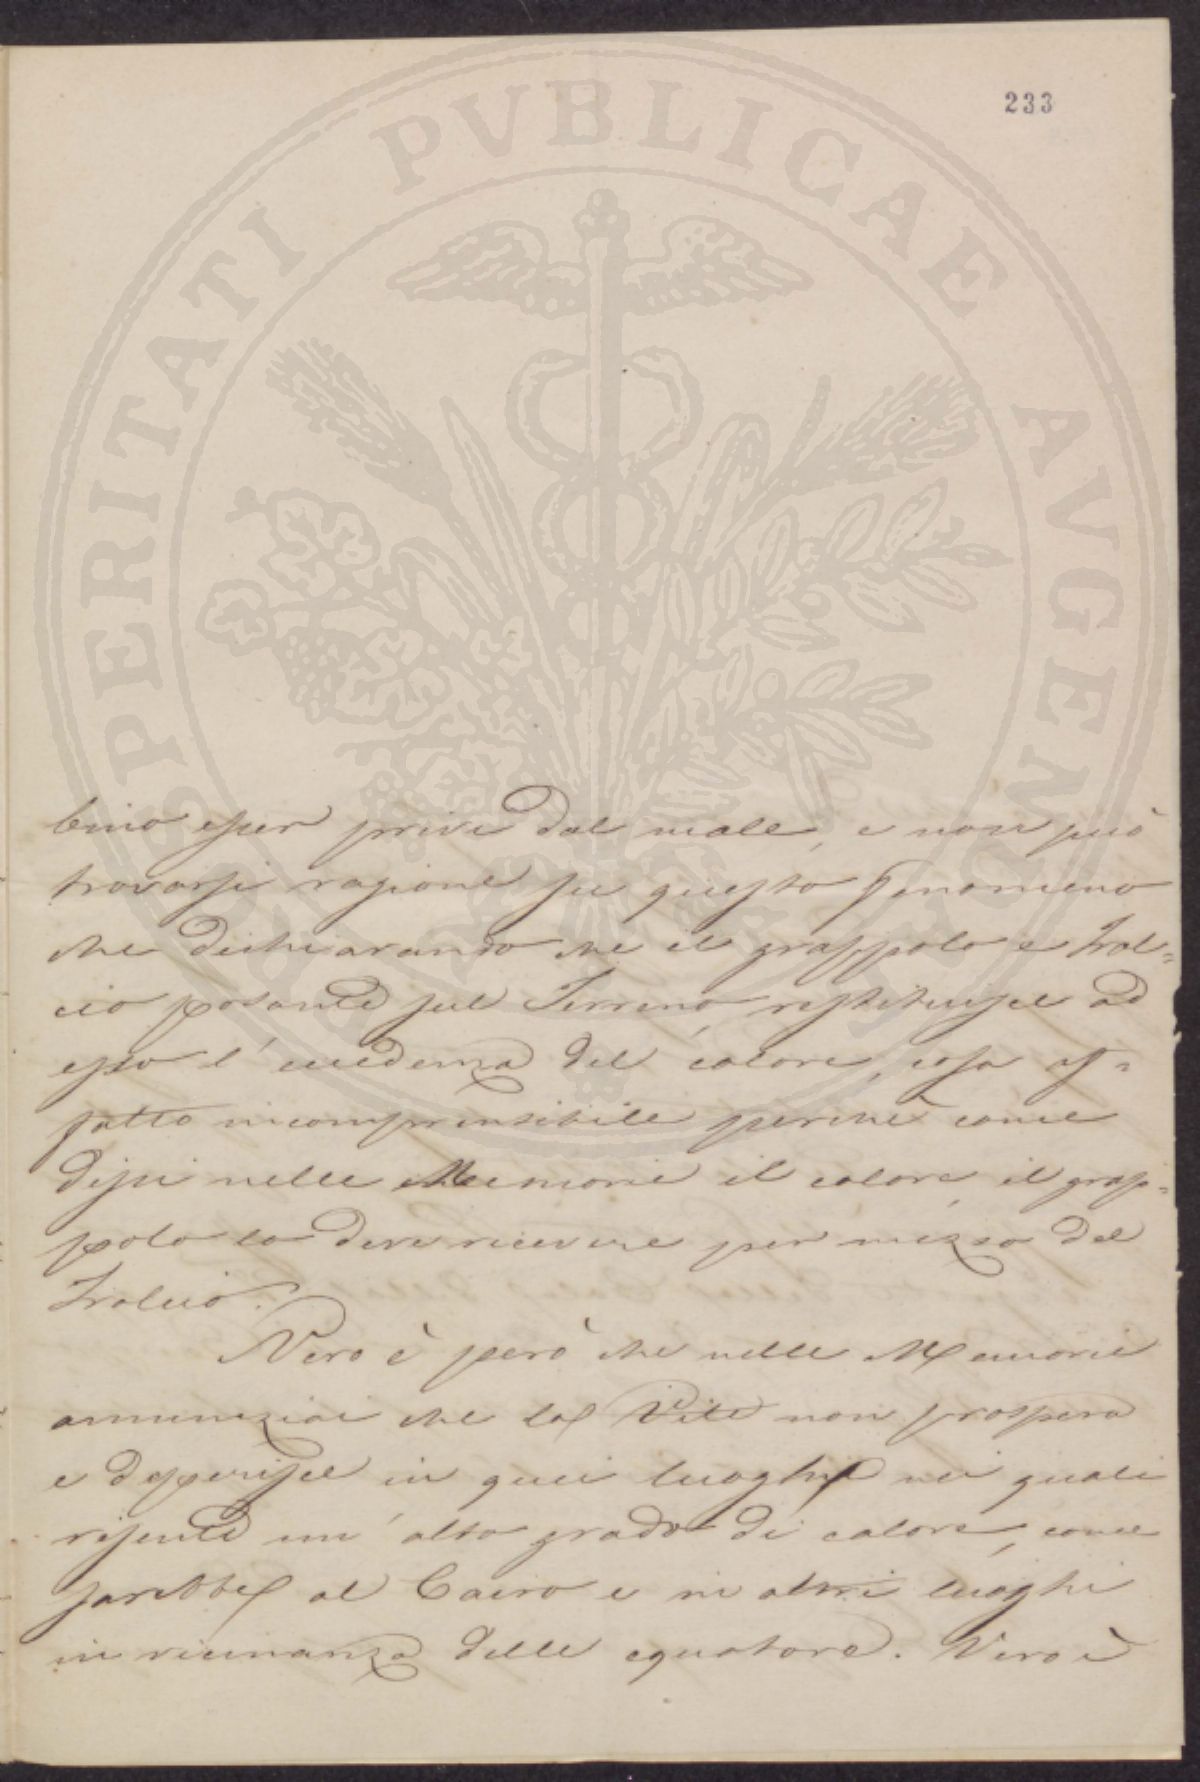 233
PROSPERITATI PVBLICAE AVGENDAE
bino esser prive dal male, e non può
trovarsi ragione su questo fenomeno
che dichiarando che il grappolo e Tral=
cio posante sul Terreno, restituisce ad
esso l' del calore, cosa af=
fatto incomprensibile perchè come
dissi nelle Memorie il calore, il grap=
polo lo deve ricevere per mezzo del
Tralcio.
Vero è però che nelle Memorie
annunziai che la Vite non prospera
e deperisce in quei luoghi nei quali
risente un' alto grado di calore, come
sarebbe al Cairo e in altri luoghi
in vicinanza delle equatore. Vero è